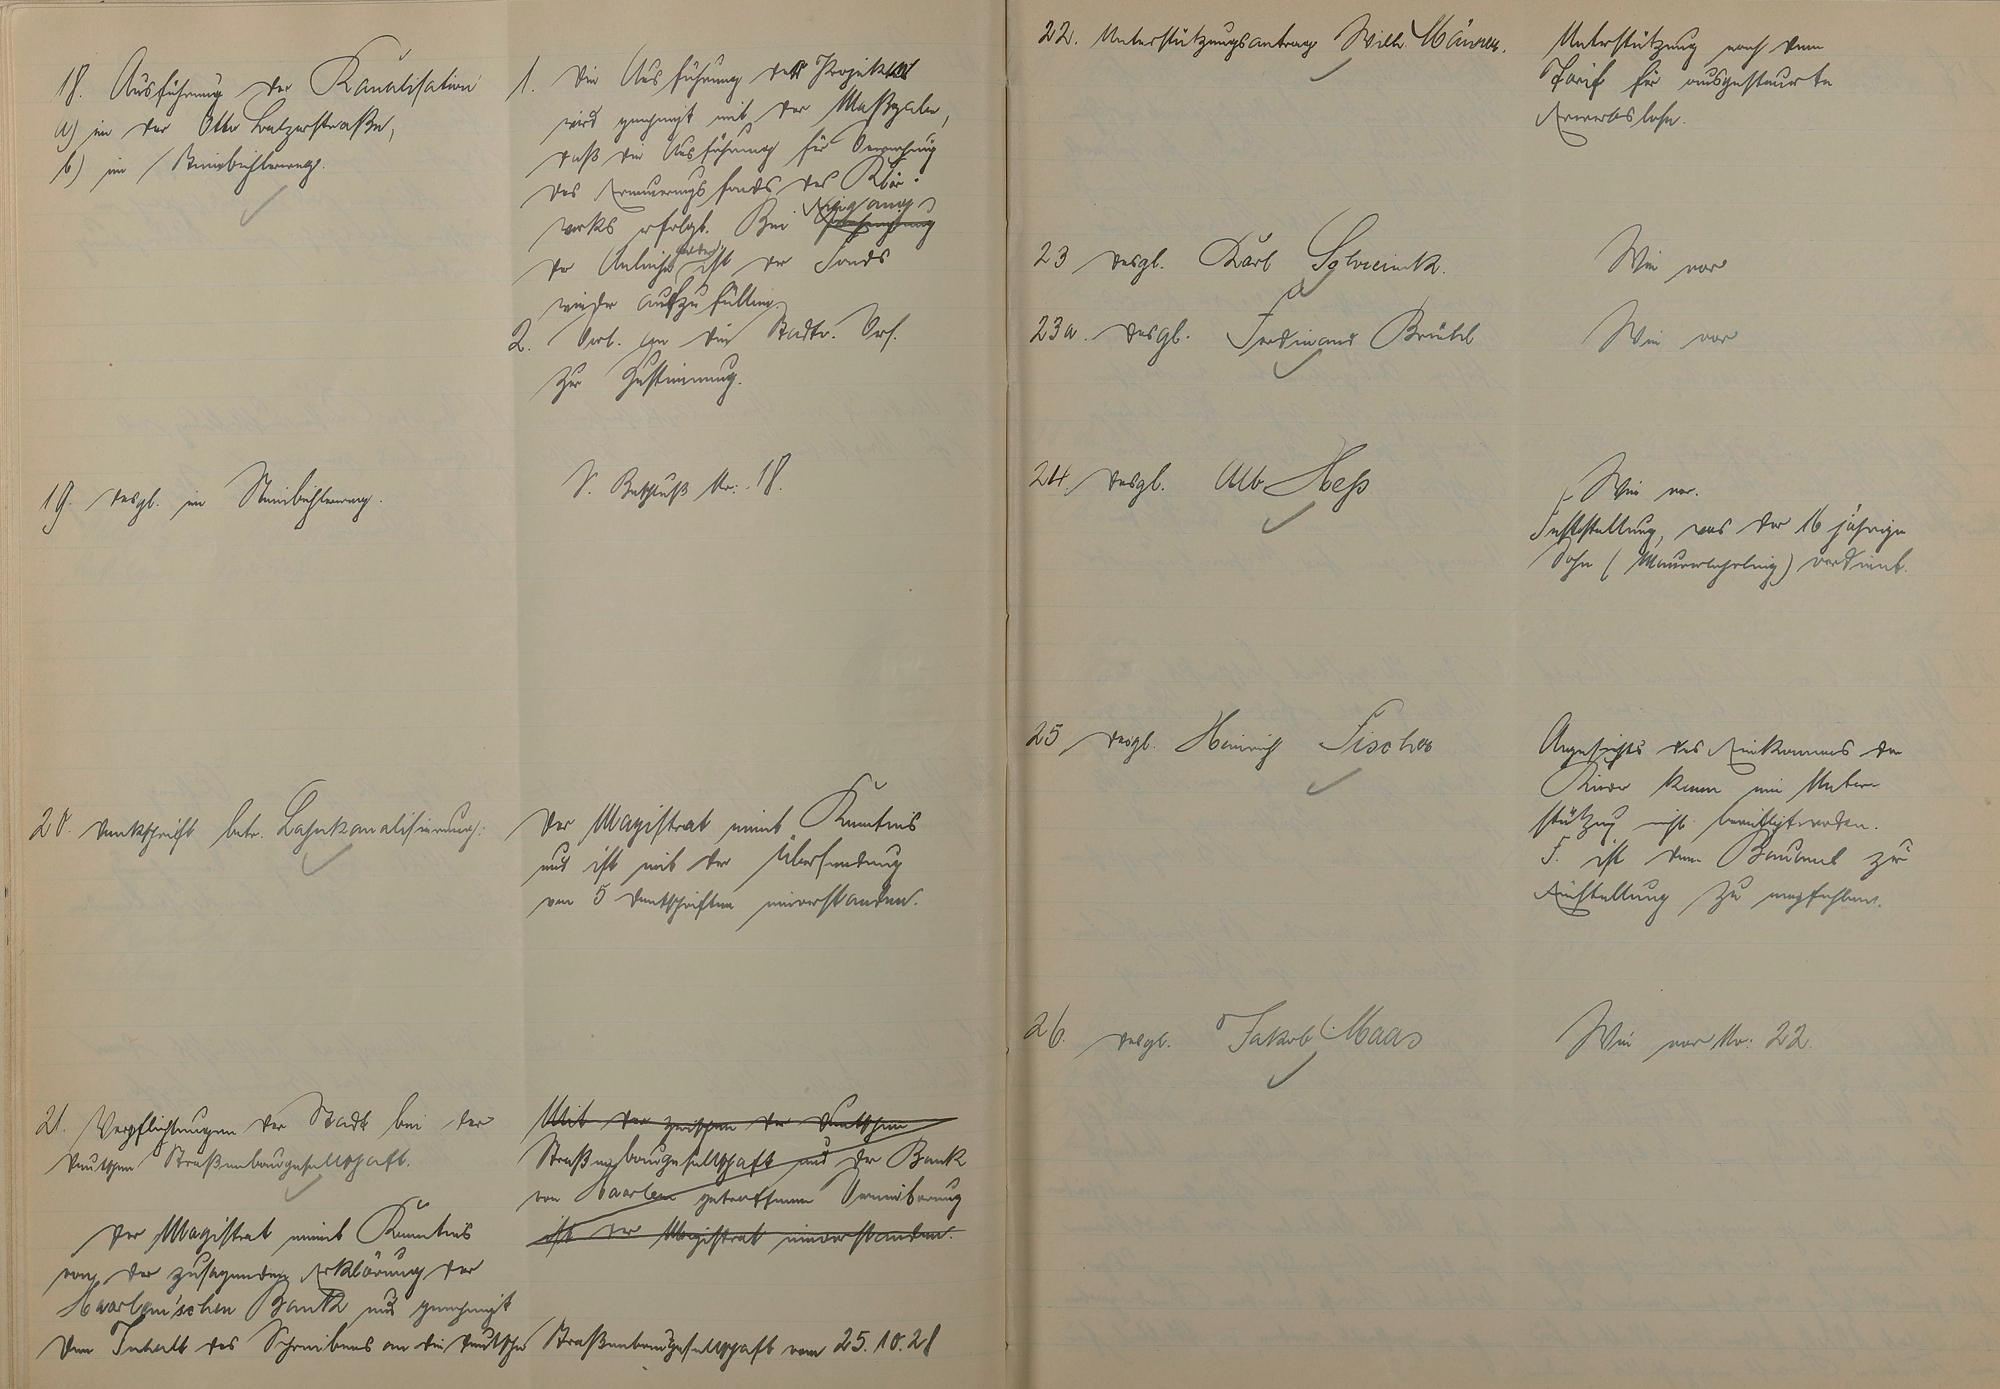 18. Ausführung der Kanalisation
a) in der Otto Balzerstraße,
b) im Steinbühlerweg.
1. Die Ausführung des Projektes
wird genehmigt mit der Maßgabe,
daß die Ausführung für Rechnung
des Erneuerungsfonds des Klär-
werks erfolgt. Bei Eingang
der Anleihe ist der Fonds
wieder aufzufüllen.
2. Vorl. an die Stadtv. Vers.
zur Zustimmung.
19. desgl. im Steinbühlerweg.
S. Beschluß Nr: 18.
20. Denkschrift betr. Lahnkanalisierung.
Der Magistrat nimmt Kenntnis
und ist mit der Übersendung
von 5 Denkschriften einverstanden.
21. Verpflichtungen der Stadt bei der
Deutschen Straßenbaugesellschaft.
Mit der zwischen der Deutschen
Straßenbaugesellschaft und der Bank
von Haarlem getroffenen Vereinbarung
ist der Magistrat einverstanden.
Der Magistrat nimmt Kenntnis
von der zusagenden Erklärung der
Haarlem'schen Bank und genehmigt
den Inhalt des Schreibens an die Deutsche Straßenbaugesellschaft vom 25.10.28
22. Unterstützungsantrag Wilh.
Unterstützung nach dem
Tarif für ausgesteuerte
Erwerbslose.
23 desgl. Karl
Wie vor
23a. desgl. Ferdinand Brühl
Wie vor
24. desgl. Alb. Heß
Wie vor.
Feststellung, was der 16 jährige
Sohn (Maurerlehrling) verdient.
25 desgl. Heinrich Fischer
Angesichts des Einkommens der
Kinder kann eine Unter-
stützung nicht bewilligt werden.
F. ist dem Bauamt zur
Einstellung zu empfehlen.
26. desgl. Jakob Maas
Wie vor Nr: 22.